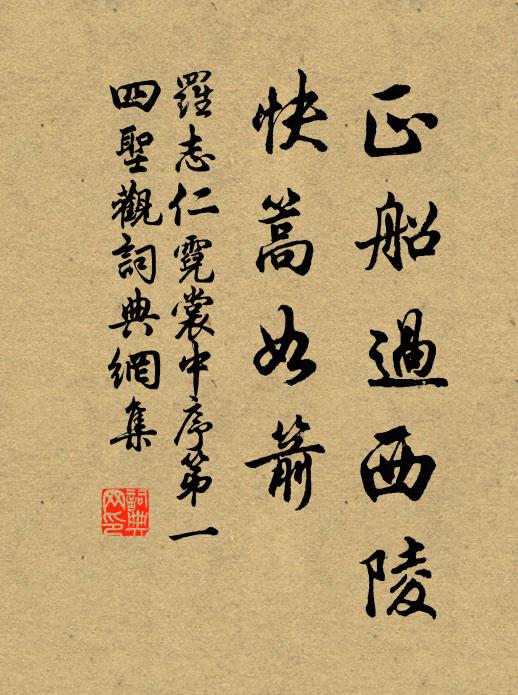 正船過西陵
快篙如箭
羅志仁霓裳中序第一
四聖觀詞典網集
詞典網印